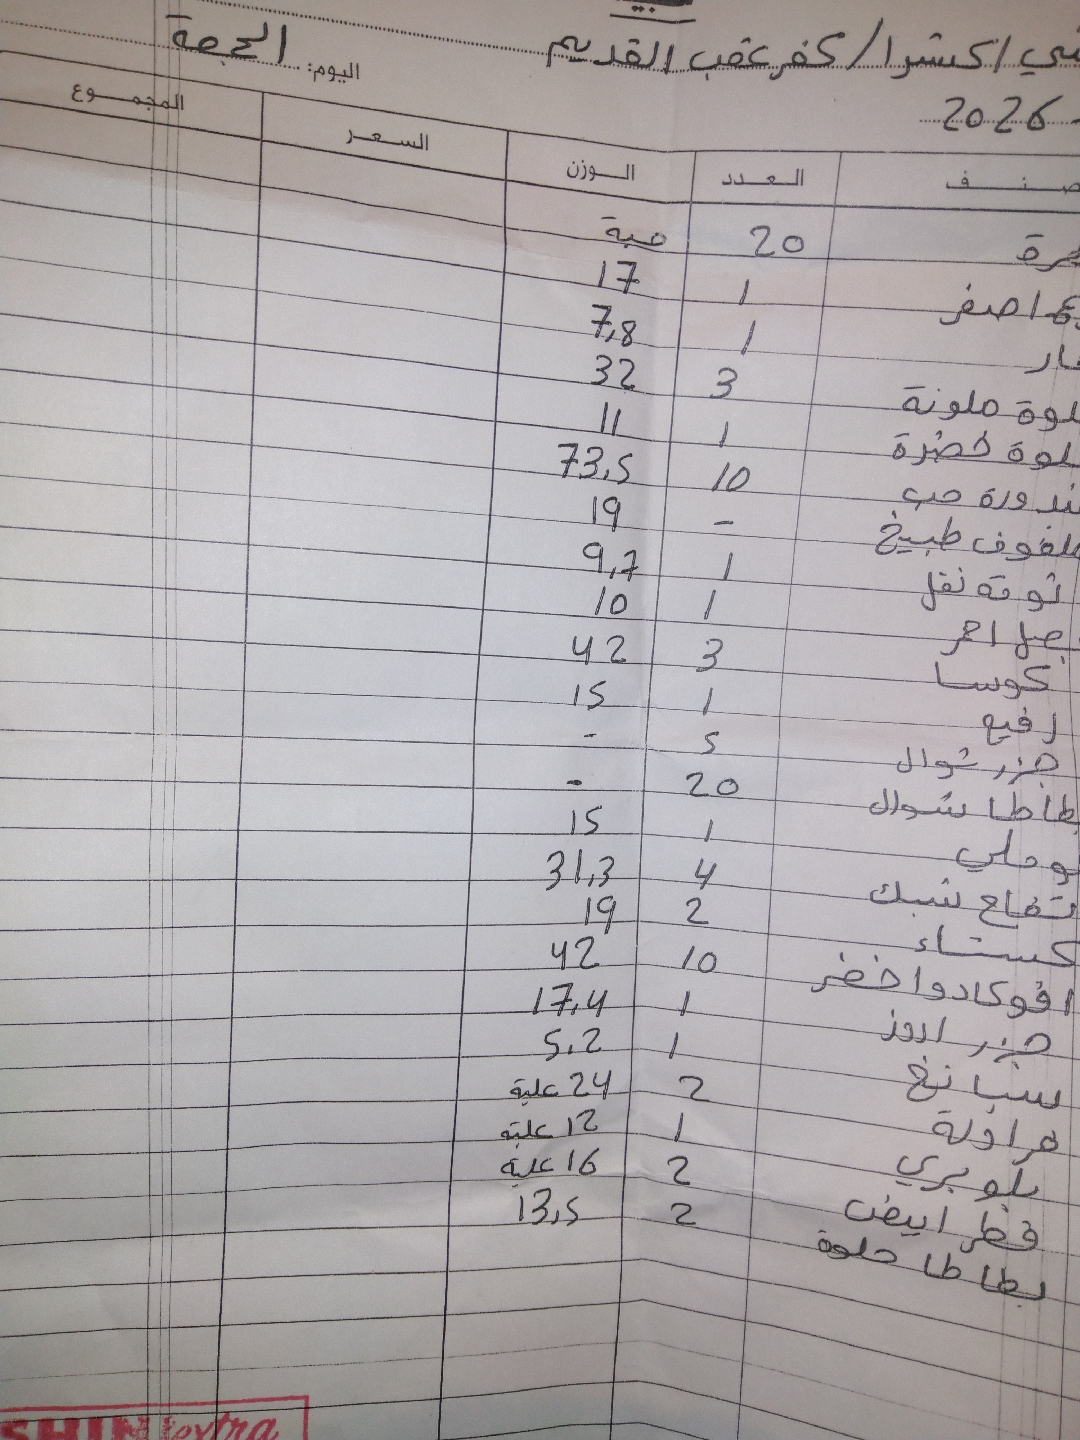 اكسترا / كفر عقب القديم
اليوم: الجمعة
2026
الصنف العدد الوزن السعر المجموع
20 حبة
اصفر 1 17
1 7,8
ملونة 3 32
خضرة 1 11
بندورة حب 10 73,5
ملفوف طبيخ - 19
ثومة نقل 1 9,7
بصل احمر 1 10
كوسا 3 42
رفيع 1 15
جزر شوال 5 -
بطاطا شوال 20 -
1 15
تفاح شبك 4 31,3
كستناء 2 19
افوكادوا خضر 10 42
جزر 1 17,4
سبانخ 1 5,2
فراولة 2 24 علبة
بلوبري 1 12 علبة
فطر ابيض 2 16 علبة
بطاطا حلوة 2 13,5
SHIN extra